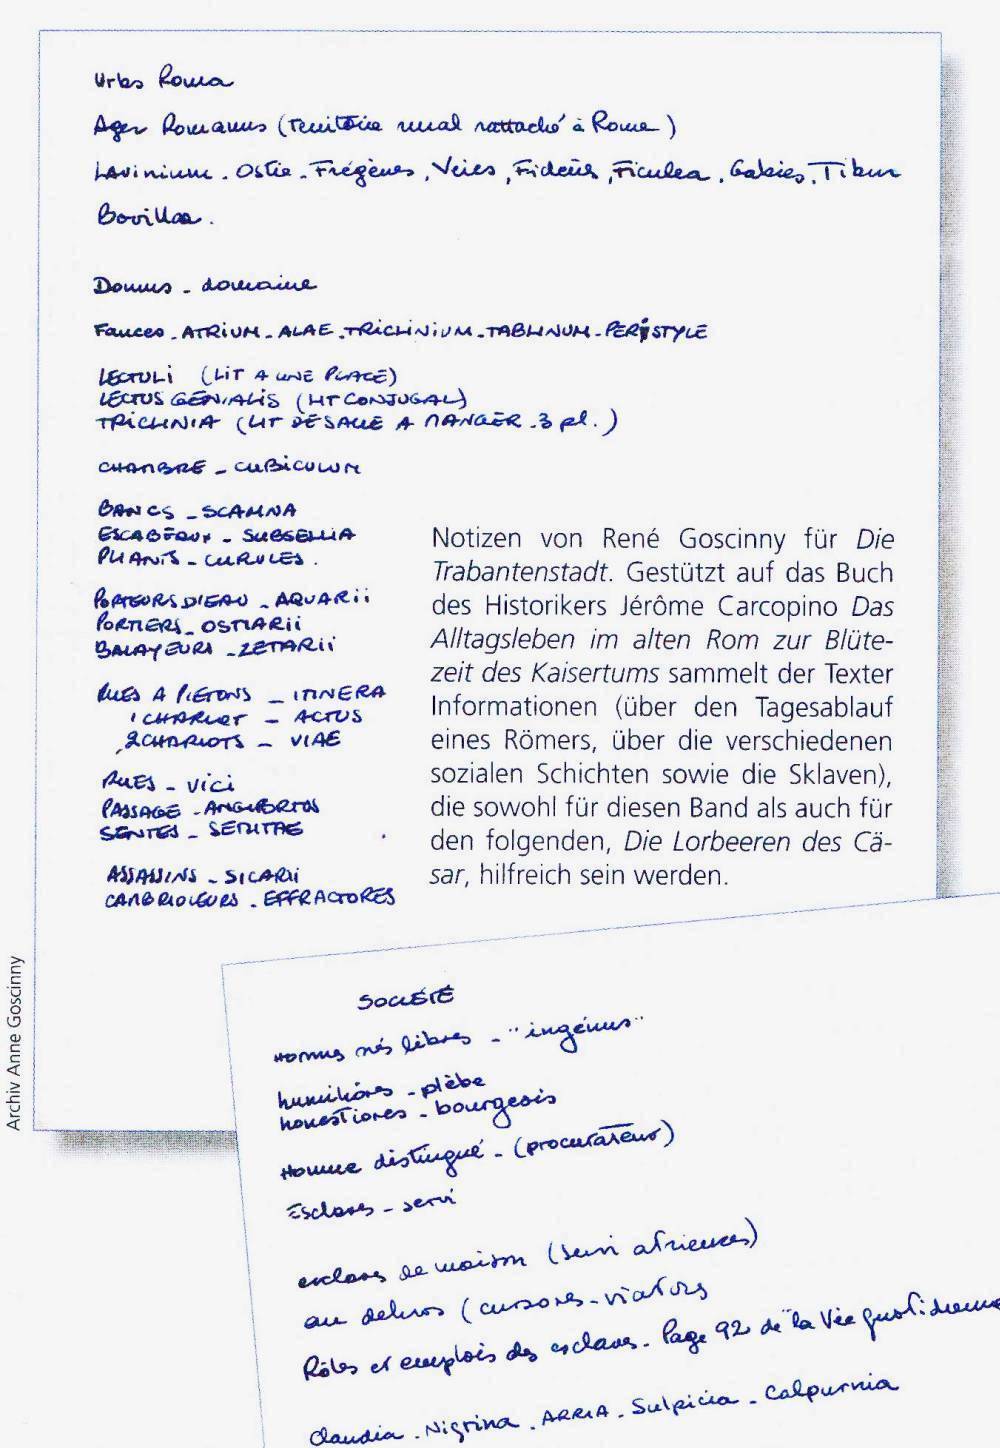 Urbs Roma
Ager Romanus (Territoire rural rattaché à Rome)
Lavinium. Ostie. Frégènes, Véies, Fidènes, Ficulea, Gabies, Tibur
Bovillae.
Domus - domaine
Fauces - ATRIUM - ALAE - TRICLINIUM - TABLINUM - PERISTYLE
LECTULI (LIT A UNE PLACE)
LECTUS GENIALIS (LIT CONJUGAL)
TRICLINIA (LIT DE SALLE A MANGER - 3 pl.)
CHAMBRE - CUBICULUM
BANCS - SCAMNA
ESCABEAUX - SUBSELLIA
PLIANTS - CURULES.
PORTEURS D'EAU - AQUARII
PORTIERS - OSTIARII
BALAYEURS - ZETARII
RUES A PIETONS - ITINERA
1 CHARIOT - ACTUS
2 CHARIOTS - VIAE
RUES - VICI
PASSAGE - ANGIPORTUS
SENTES - SEMITAE
ASSASSINS - SICARII
CAMBRIOLEURS - EFFRACTORES
Notizen von René Goscinny für Die
Trabantenstadt. Gestützt auf das Buch
des Historikers Jérôme Carcopino Das
Alltagsleben im alten Rom zur Blüte-
zeit des Kaisertums sammelt der Texter
Informationen (über den Tagesablauf
eines Römers, über die verschiedenen
sozialen Schichten sowie die Sklaven),
die sowohl für diesen Band als auch für
den folgenden, Die Lorbeeren des Cä-
sar, hilfreich sein werden.
Archiv Anne Goscinny
SOCIÉTÉ
Hommes nés libres - "ingénus"
humiliores - plèbe
honestiores - bourgeois
Homme distingué - (procurateur)
Esclaves - servi
esclaves de maison (servi atrienses)
au dehors (cursores - viatores
Rôles et emplois des esclaves - Page 92 de "la Vie quotidienne
Claudia - Nigrina - ARRIA - Sulpicia - Calpurnia